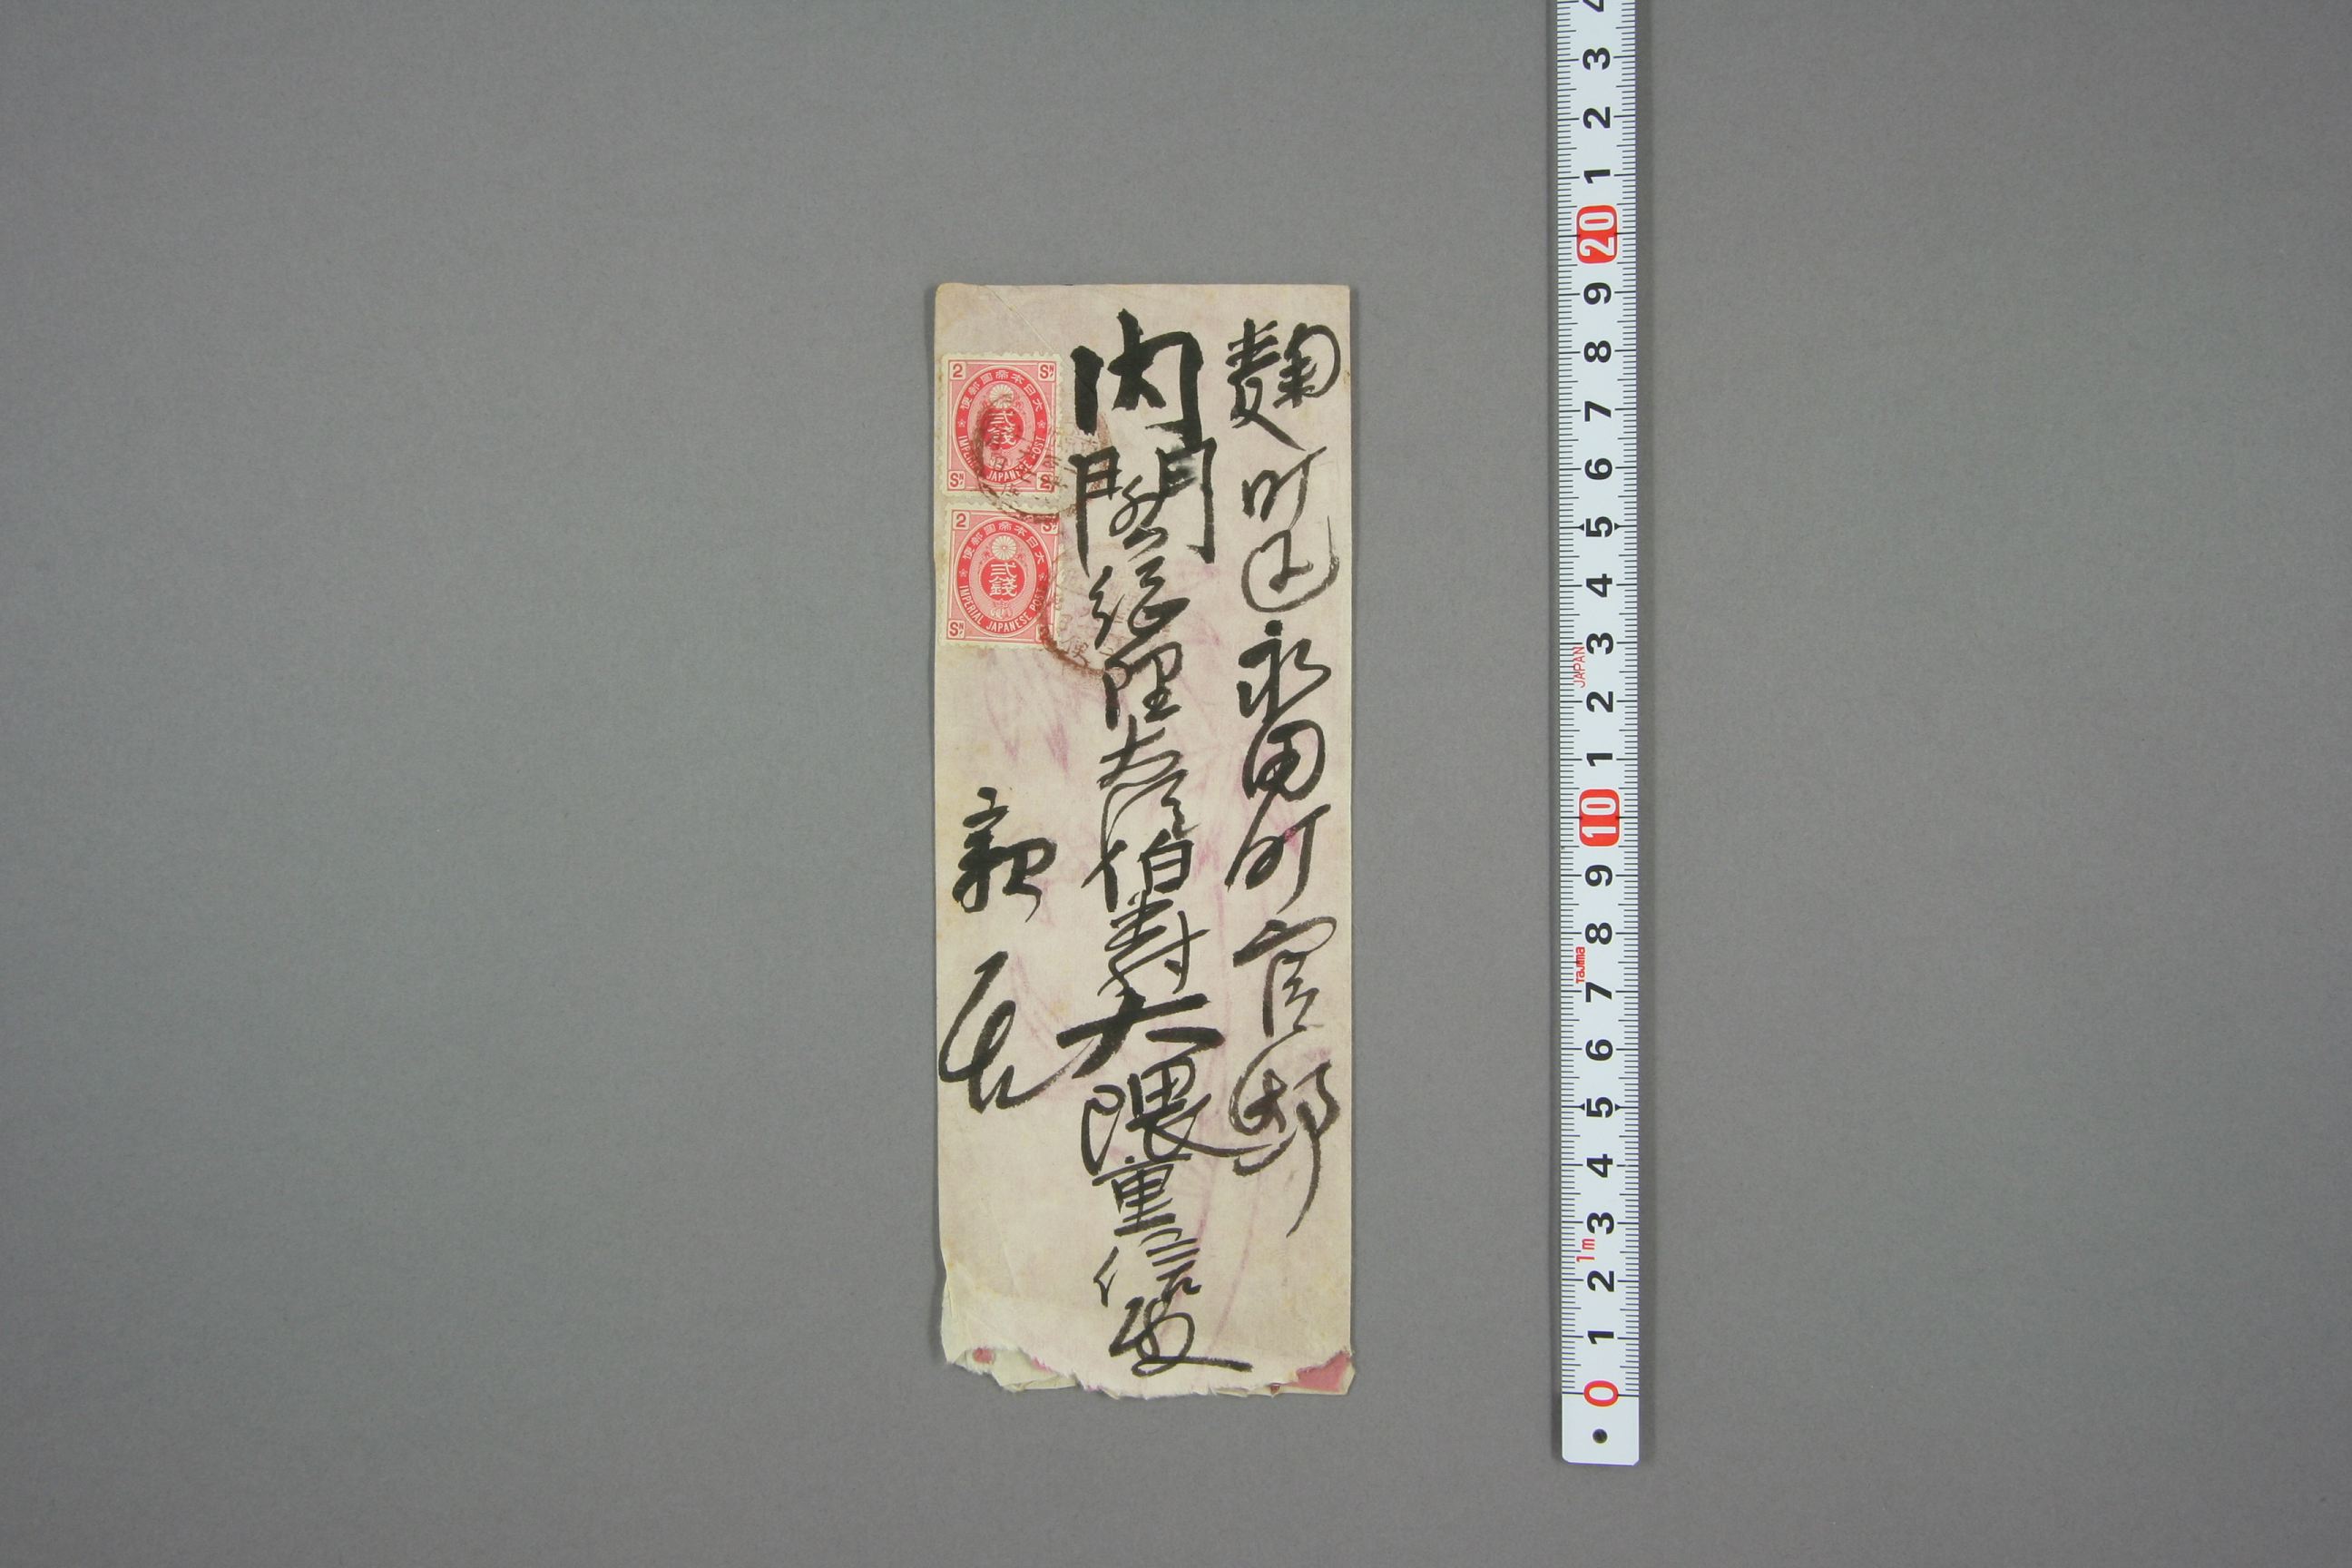 麹町区永田町官邸
内閣総理大臣伯爵大隈重信殿
親展
2 SN
大日本帝國郵便
貳錢
IMPERIAL JAPANESE POST
SN 2
2 SN
大日本帝國郵便
貳錢
IMPERIAL JAPANESE POST
SN
4
3
2
1
20
9
8
7
6
5
4
3
JAPAN
2
1
10
9
8
Tajima
7
6
5
4
3
1m
2
1
0